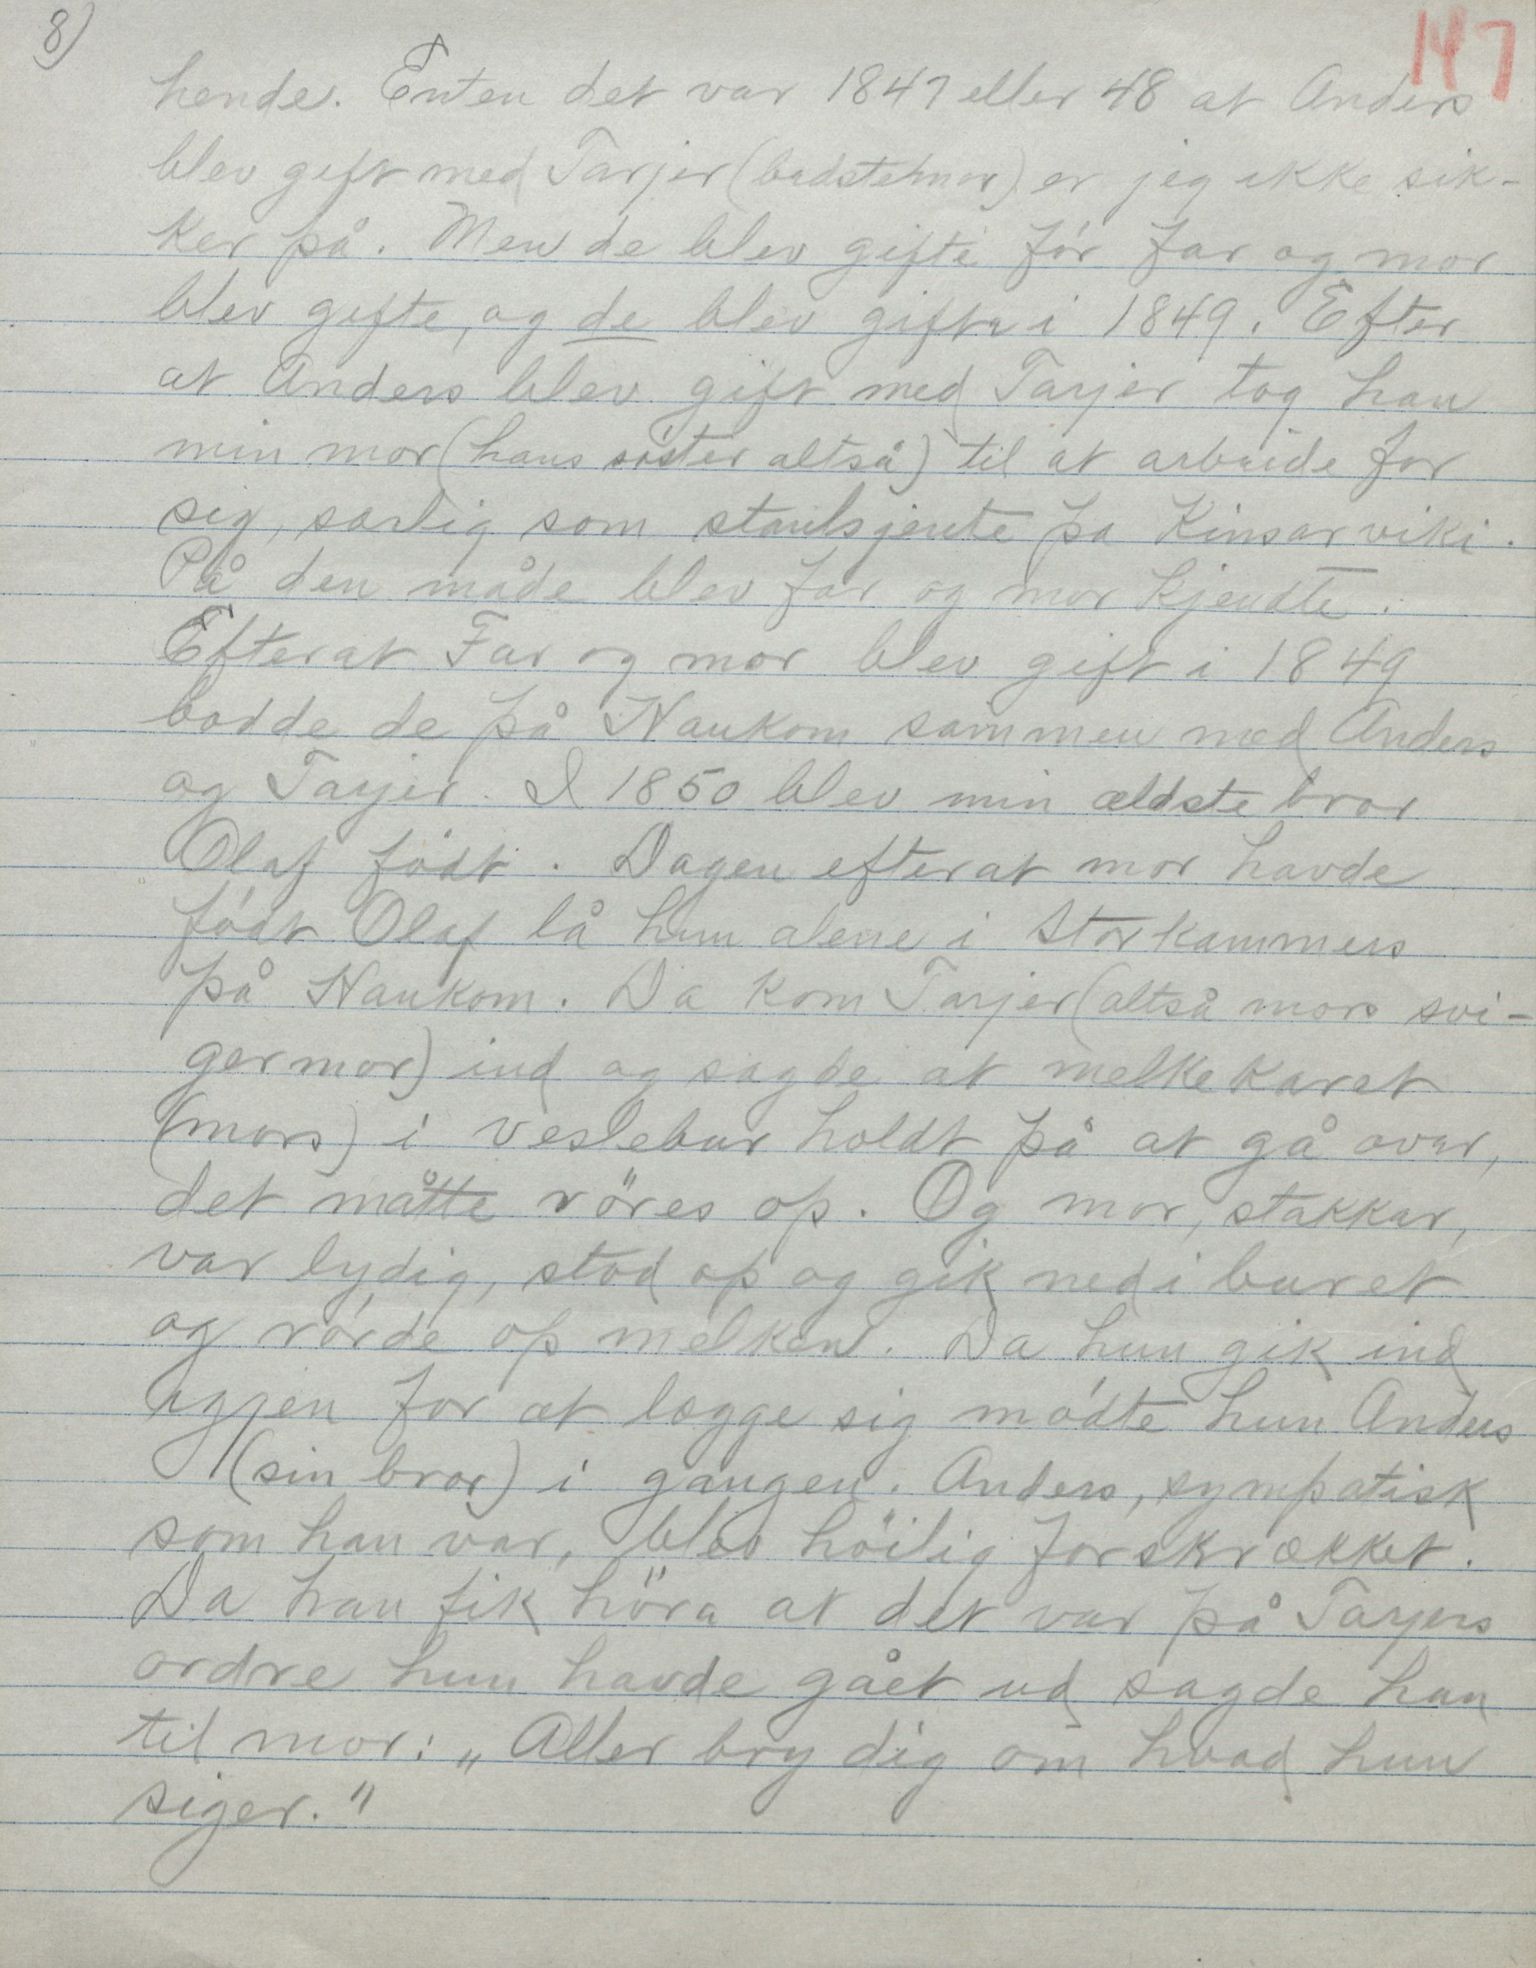 8)
147
hende. Enten det var 1847 eller 48 at Anders
blev gift med Tarjer (bedstemor) er jeg ikke sik-
ker på. Men de blev gifte før far og mor
blev gifte, og de blev gifta i 1849. Efter
at Anders blev gift med Tarjer tog han
min mor (hans søster altså) til at arbeide for
sig, særlig som staulsjente pa Kinsarviki.
På den måde blev far og mor kjendte.
Efterat Far og mor blev gift i 1849
bodde de på Haukom sammen med Anders
og Tarjer. I 1850 blev min ældste bror
Olaf født. Dagen efterat mor havde
født Olaf lå hun alene i Storkammers
på Haukom. Da kom Tarjer (altså mors svi-
germor) ind og sagde at melkekaret
(mors) i veslebur holdt på at gå over,
det måtte röres op. Og mor, stakkar,
var lydig, stod op og gik ned i buret
og rørde op melken. Da hun gik ind
igjen for at lægge sig mødte hun Anders
(sin bror) i gangen. Anders, sympatisk
som han var, blev höilig forskrækket.
Da han fik höra at det var på Tarjers
ordre hun havde gået ud sagde han
til mor: „Aller bry dig om hvad hun
siger."